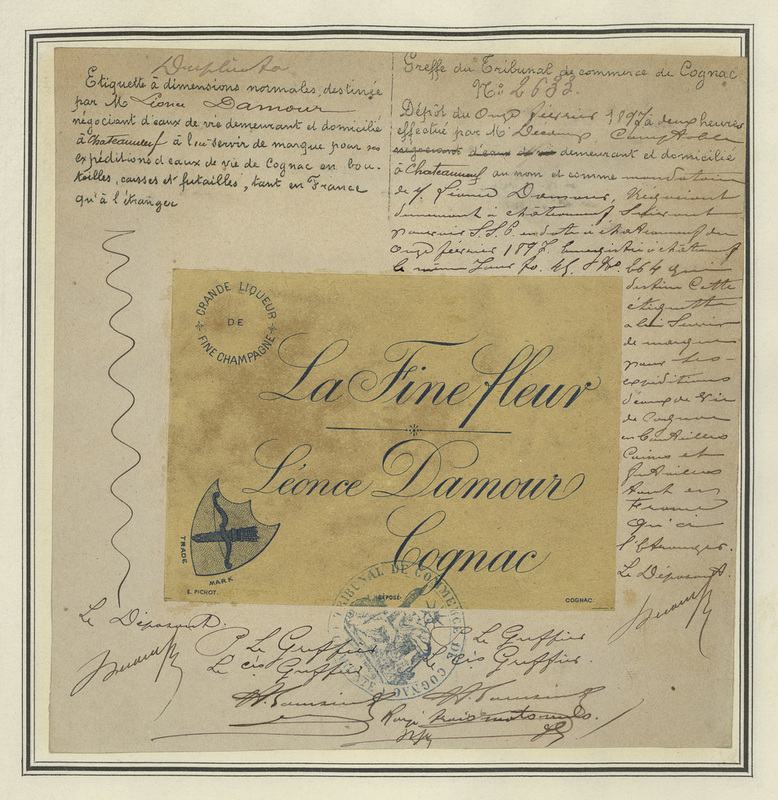 Duplicata
Etiquette à dimensions normales, destinée
par M Léonce Damour
négociant d'eaux de vie demeurant et domicilié
à Chateauneuf à lui servir de marque pour ses
expéditions d'eaux de vie de Cognac en bou-
teilles, caisses et futailles, tant en France
qu'à l'étranger
Greffe du Tribunal de commerce de Cognac
N° 2633
Dépôt du onze février 1897 à deux heures
effectué par Mr Comptable
négociant d'eaux de vie demeurant et domicilié
à Chateauneuf au nom et comme mandataire
de M Léonce Damour, Négociant
demeurant à châteauneuf suivant
pouvoir S.S.P. en date à châteauneuf du
onze février 1897. Enregistré à châteauneuf
le même Jour fo. 45. 664 que
destine Cette
étiquette
a lui Servir
de marque
pour ses
expéditions
d'eaux de Vie
de Cognac
en Bouteilles
Caisses et
futailles
tant en
France
qu'à
l'étranger.
Le Déposant.
GRANDE LIQUEUR
DE
FINE CHAMPAGNE
La Fine fleur
Léonce Damour
Cognac
TRADE
MARK
E. PICHOT.
DÉPOSÉ
COGNAC.
TRIBUNAL DE COMMERCE DE COGNAC
Le Déposant.
P. Le Greffier
Le cis Greffier
P. Le Greffier
Le cis Greffier.
Rayé trois mots nuls.